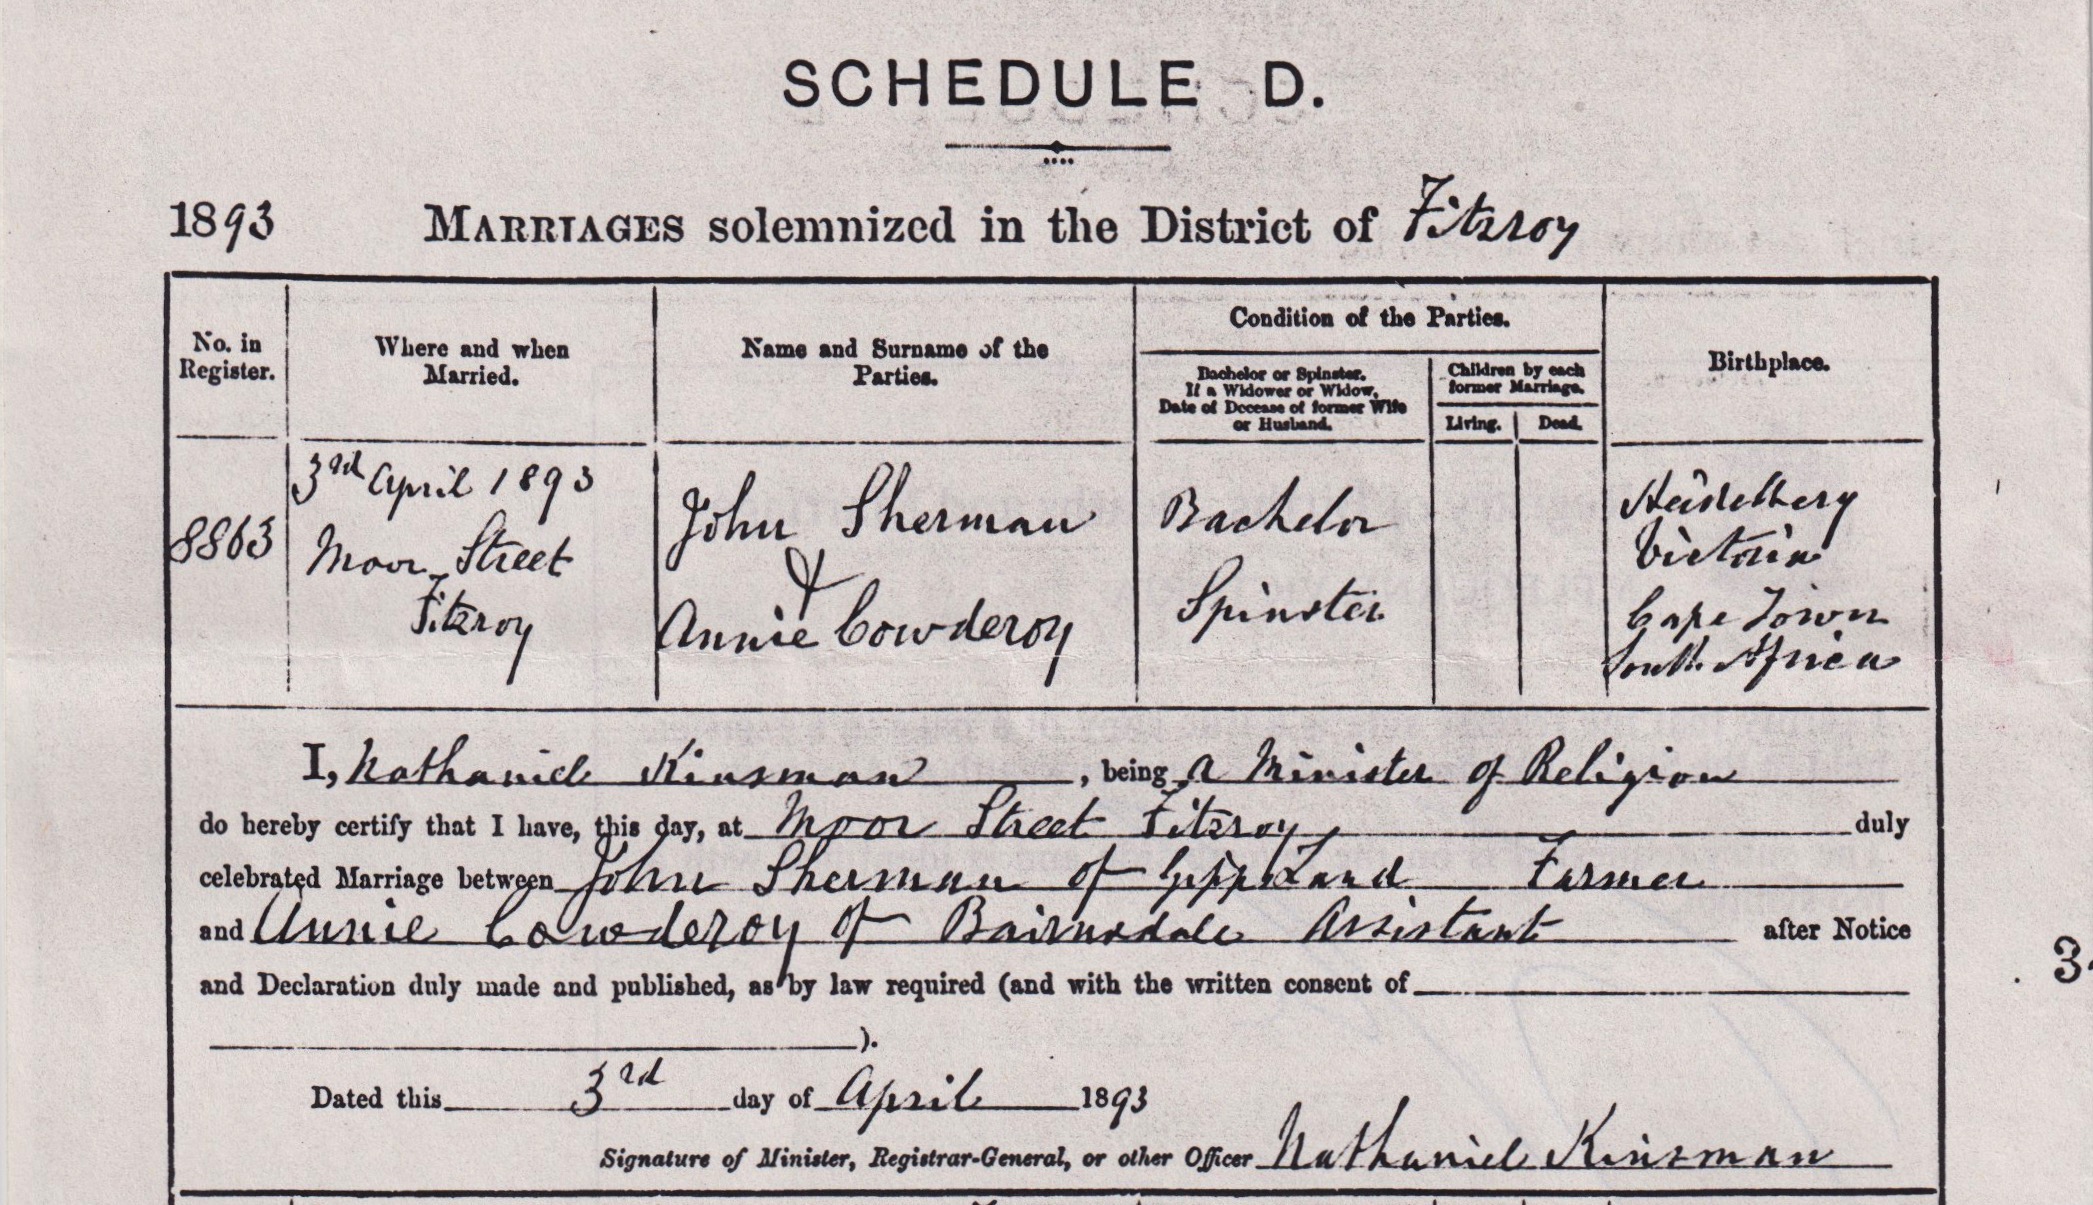 SCHEDULE D.
1893 MARRIAGES solemnized in the District of Fitzroy
No. in Register.
Where and when Married.
Name and Surname of the Parties.
Condition of the Parties.
Bachelor or Spinster.
If a Widower or Widow,
Date of Decease of former Wife
or Husband.
Children by each
former Marriage.
Living. Dead.
Birthplace.
8863
3rd April 1893
Moor Street
Fitzroy
John Sherman
&
Annie Cowderoy
Bachelor
Spinster
Heidelberg
Victoria
Cape Town
South Africa
I, Nathaniel Kinsman, being a Minister of Religion
do hereby certify that I have, this day, at Moor Street Fitzroy duly
celebrated Marriage between John Sherman of Gippsland Farmer
and Annie Cowderoy of Bairnsdale Assistant after Notice
and Declaration duly made and published, as by law required (and with the written consent of
).
Dated this 3rd day of April 1893
Signature of Minister, Registrar-General, or other Officer Nathaniel Kinsman